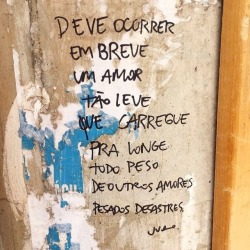 DEVE OCORRER
EM BREVE
UM AMOR
TÃO LEVE
QUE CARREGUE
PRA LONGE
TODO PESO
DE OUTROS AMORES
PESADOS DESASTRES